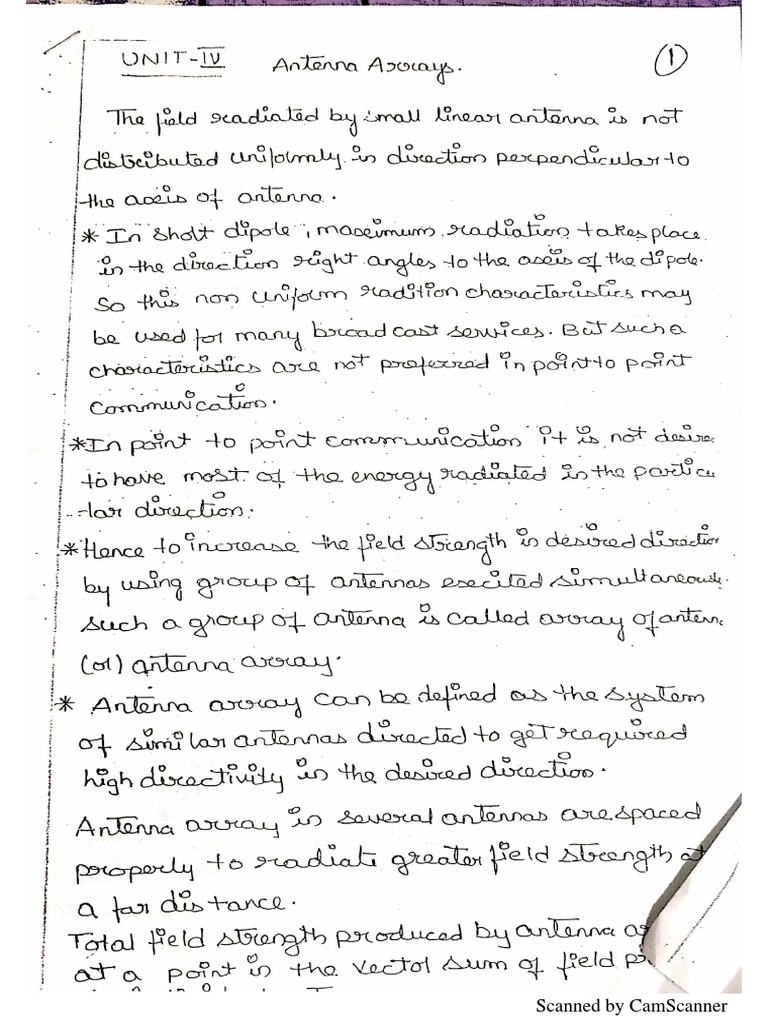 UNIT-IV Antenna Arrays. 1
The field radiated by small linear antenna is not
distributed uniformly in direction perpendicular to
the axis of antenna.
* In short dipole, maximum radiation takes place
in the direction right angles to the axis of the dipole.
So this non uniform radition characteristics may
be used for many broadcast services. But such a
characteristics are not preferred in point to point
communication.
* In point to point communication it is not desire
to have most of the energy radiated in the particu
-lar direction.
* Hence to increase the field strength in desired direction
by using group of antennas excited simultaneously.
such a group of antenna is called array of antenn
(or) antenna array.
* Antenna array can be defined as the system
of similar antennas directed to get required
high directivity in the desired direction.
Antenna array in several antennas are spaced
properly to radiate greater field strength at
a far distance.
Total field strength produced by antenna ar
at a point is the vector sum of field
Scanned by CamScanner